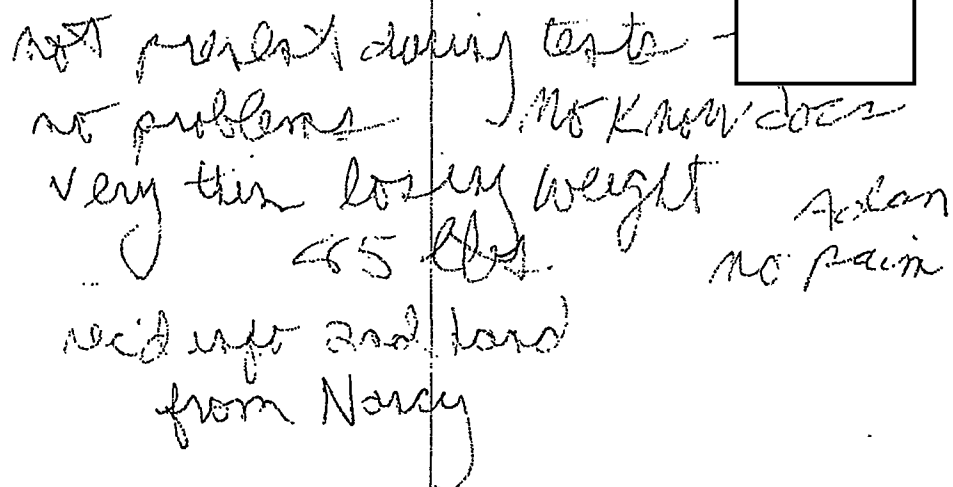 not present during tests -
no problems No Know docs
very thin losing weight
85 lbs. no pain
rec'd info 2nd hand
from Nancy